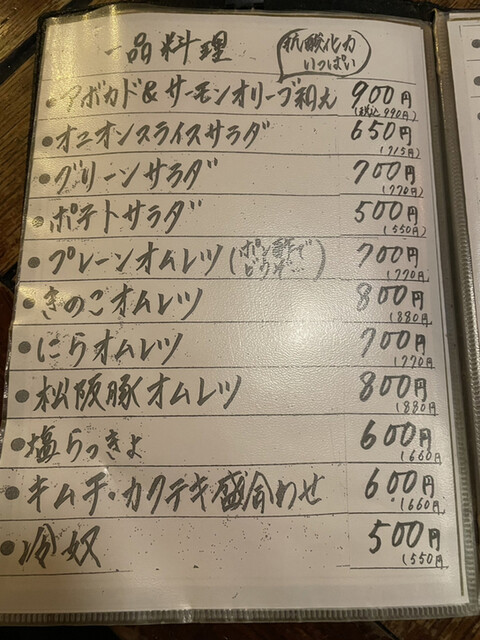 一品料理
抗酸化力
いっぱい
●アボカド&サーモンオリーブ和え 900円
(税込990円)
●オニオンスライスサラダ 650円
(715円)
●グリーンサラダ 700円
(770円)
●ポテトサラダ 500円
(550円)
●プレーンオムレツ(ポン酢で
どうぞ…) 700円
(770円)
●きのこオムレツ 800円
(880円)
●にらオムレツ 700円
(770円)
●松阪豚オムレツ 800円
(880円)
●塩らっきょ 600円
(660円)
●キムチ・カクテキ盛合わせ 600円
(660円)
●冷奴 500円
(550円)